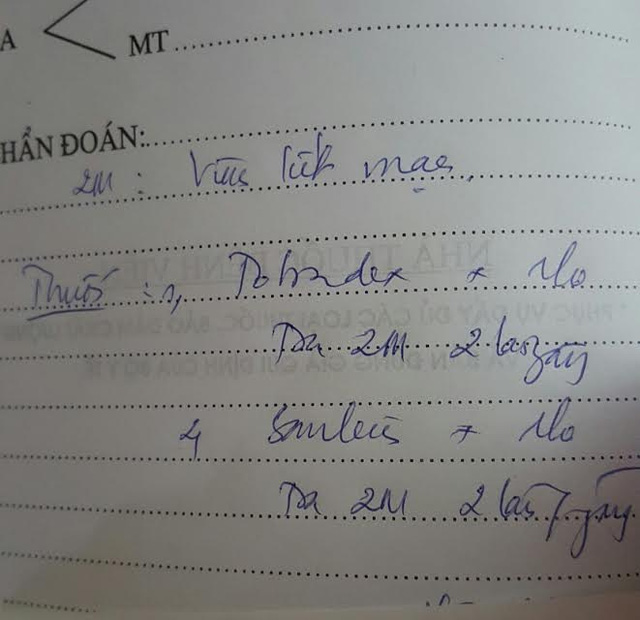 A
MT
HẨN ĐOÁN:
2M: Viêm kết mạc.
Thuốc: 1, Tobradex x 1lo
Tra 2M 2 lần/ngày
2, Sanlein x 1lo
Tra 2M 2 lần/ngày
NHÀ THUỐC BỆNH VIỆN
* PHỤC VỤ ĐẦY ĐỦ CÁC LOẠI THUỐC, BẢO ĐẢM CHẤT LƯỢNG
BÁN ĐÚNG GIÁ QUI ĐỊNH CỦA BỘ Y TẾ